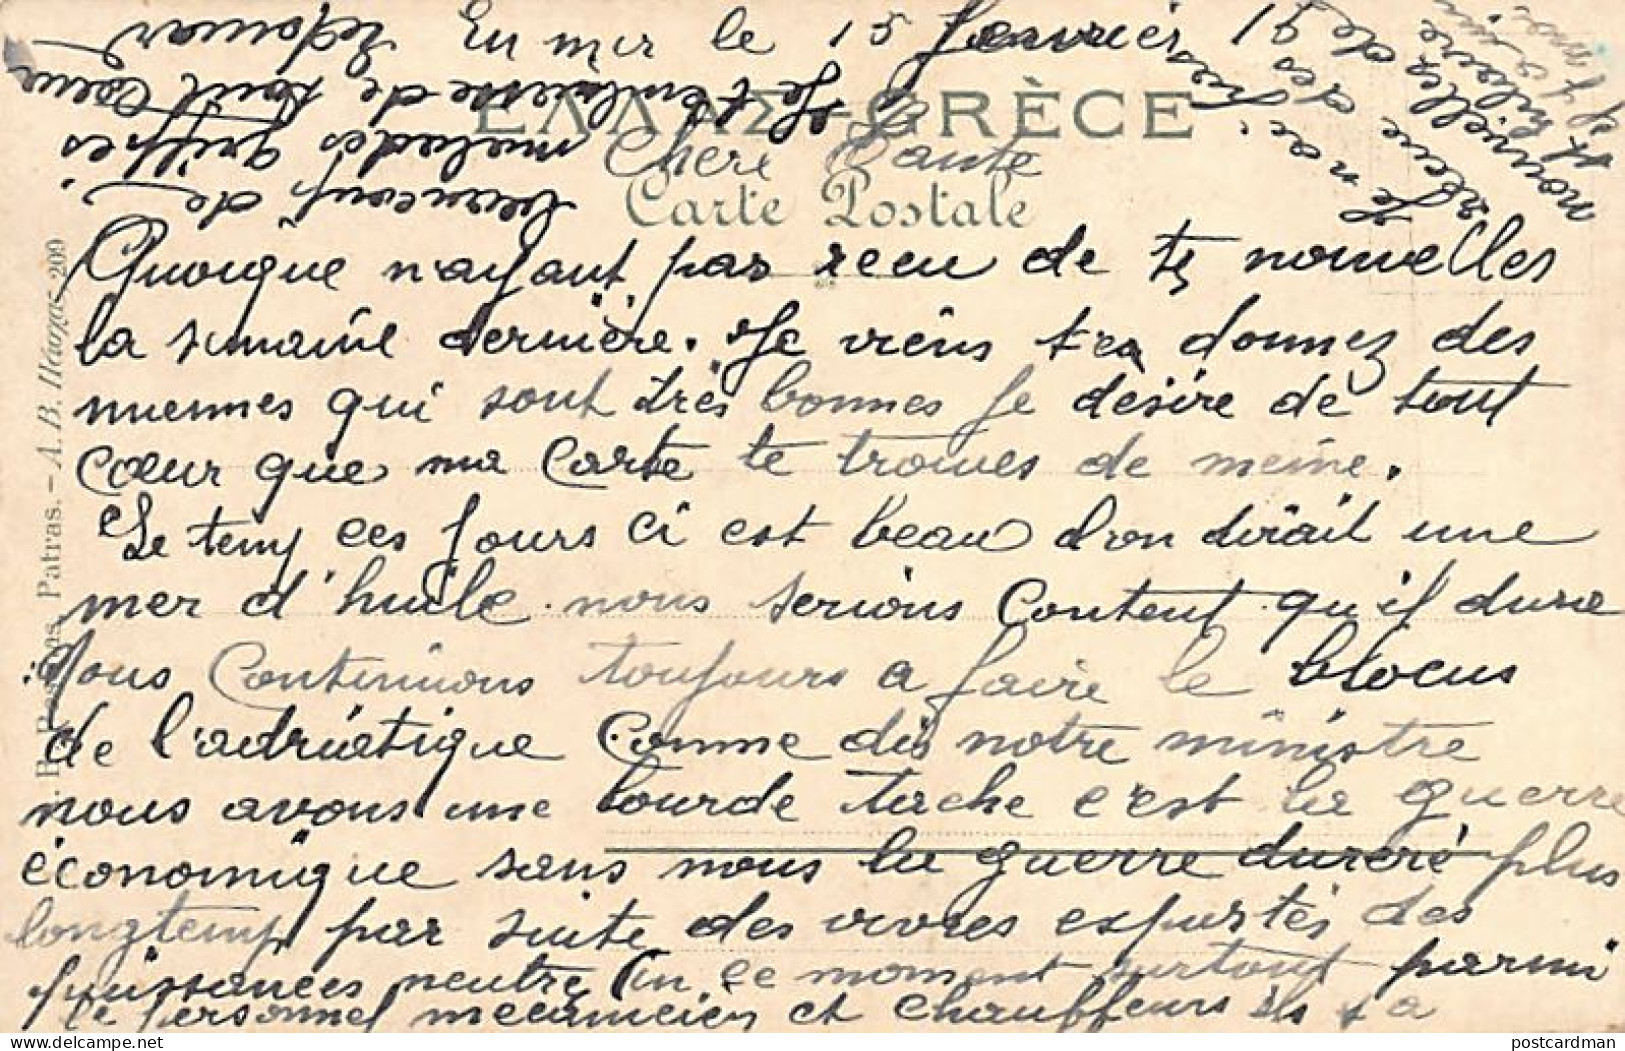 En mer le 15 Janvier 19
ΕΛΛΑΣ-GRÈCE
Chere Tante
Carte Postale
Quoique n'ayant pas recu de te nouvelles
la semaine dernière. Je viens te donnez des
miennes qui sont très bonnes Je désire de tout
cœur que ma Carte te trouves de meine.
Le temp ces jours ci est beau l'on dirait une
mer d'huile nous serions Content qu'il dure
Nous Continuions toujours a faire le blocus
de l'adriatique Comme dis notre ministre
nous avons une lourde tache c'est la guerre
économique sans nous la guerre dureré plus
longtemp par suite des vivres exportés des
puissances neutre En ce moment surtout parmi
le personnel mecanicien et chauffeurs ils y a
beaucoup de
malades grippes
Je t'embrasse de tout Coeur
Edouard
Je n'ai
nouvelles de
Patras. - A. B. Πασχας 209
postcardman